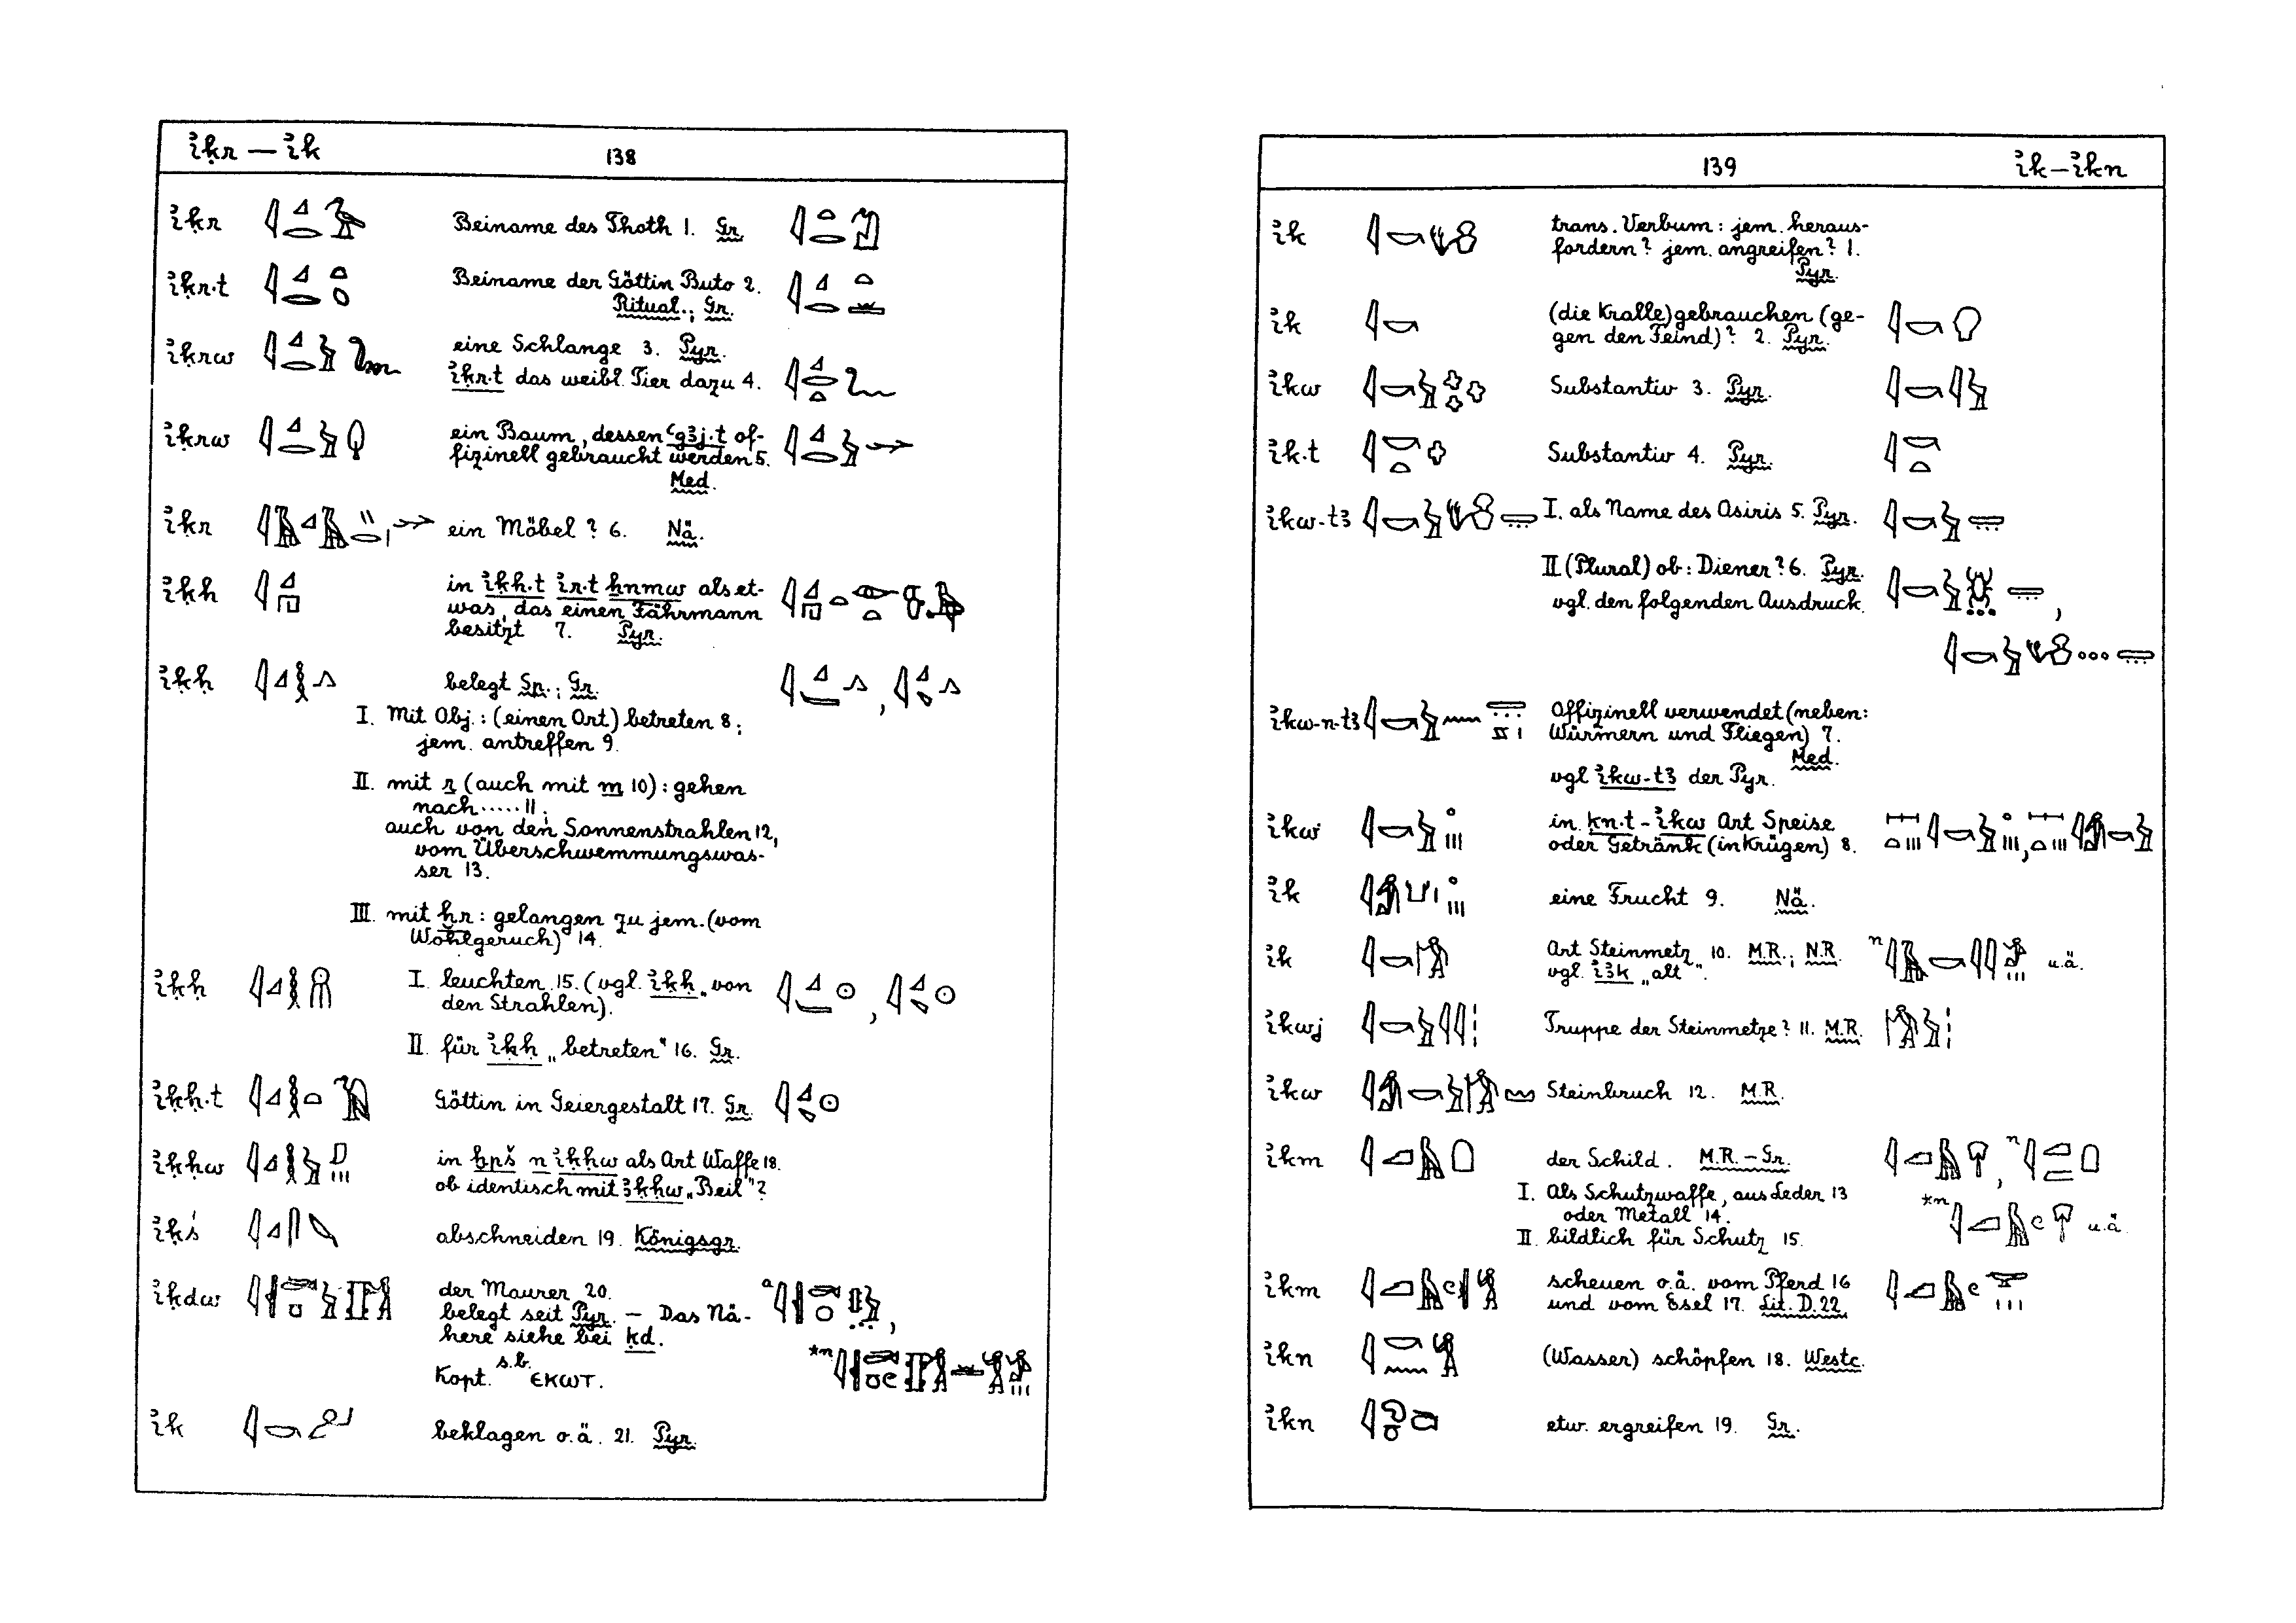 ı͗ḳr — ı͗k
138
ı͗ḳr Beiname des Thoth 1. Gr.
ı͗ḳr.t Beiname der Göttin Buto 2.
Ritual.; Gr.
ı͗ḳrw eine Schlange 3. Pyr.
ı͗ḳr.t das weibl. Tier dazu 4.
ı͗ḳrw ein Baum, dessen ꜥgꜣj.t of-
fizinell gebraucht werden 5.
Med.
ı͗ḳr ein Möbel? 6. Nä.
ı͗ḳh in ı͗ḳh.t ı͗r.t ẖnmw als et-
was, das einen Fährmann
besitzt 7. Pyr.
ı͗ḳḥ belegt Sp.; Gr.
I. Mit Obj.: (einen Ort) betreten 8;
jem. antreffen 9.
II. mit r (auch mit m 10): gehen
nach ..... 11;
auch von den Sonnenstrahlen 12,
vom Überschwemmungswas-
ser 13.
III. mit ḫr: gelangen zu jem. (vom
Wohlgeruch) 14.
ı͗ḳḥ I. leuchten 15. (vgl. ı͗ḳḥ „von
den Strahlen).
II. für ı͗ḳḥ „betreten" 16. Gr.
ı͗ḳḥ.t Göttin in Geiergestalt 17. Gr.
ı͗ḳḥw in ḫpš n ı͗ḳḥw als Art Waffe 18.
ob identisch mit ꜣḳḥw „Beil"?
ı͗ḳś abschneiden 19. Königsgr.
ı͗ḳdw der Maurer 20.
belegt seit Pyr. — Das Nä-
here siehe bei ḳd.
Kopt. s.b. ⲉⲕⲱⲧ.
ı͗k beklagen o.ä. 21. Pyr.
139
ı͗k — ı͗kn
ı͗k trans. Verbum: jem. heraus-
fordern? jem. angreifen? 1.
Pyr.
ı͗k (die Kralle) gebrauchen (ge-
gen den Feind)? 2. Pyr.
ı͗kw Substantiv 3. Pyr.
ı͗k.t Substantiv 4. Pyr.
ı͗kw-tꜣ I. als Name des Osiris 5. Pyr.
II (Plural) ob: Diener? 6. Pyr.
vgl. den folgenden Ausdruck.
ı͗kw-n-tꜣ Offizinell verwendet (neben:
Würmern und Fliegen) 7.
Med.
vgl ı͗kw-tꜣ der Pyr.
ı͗kw in kn.t - ı͗kw Art Speise
oder Getränk (in Krügen) 8.
ı͗k eine Frucht 9. Nä.
ı͗k Art Steinmetz 10. M.R.; N.R. u.ä.
vgl. ı͗ꜣk „alt".
ı͗kwj Truppe der Steinmetze? 11. M.R.
ı͗kw Steinbruch 12. M.R.
ı͗km der Schild. M.R. — Gr.
I. Als Schutzwaffe, aus Leder 13
oder Metall 14. u.ä
II. bildlich für Schutz 15.
ı͗km scheuen o.ä. vom Pferd 16
und vom Esel 17. Lit. D. 22.
ı͗kn (Wasser) schöpfen 18. Westc.
ı͗kn etw. ergreifen 19. Gr.